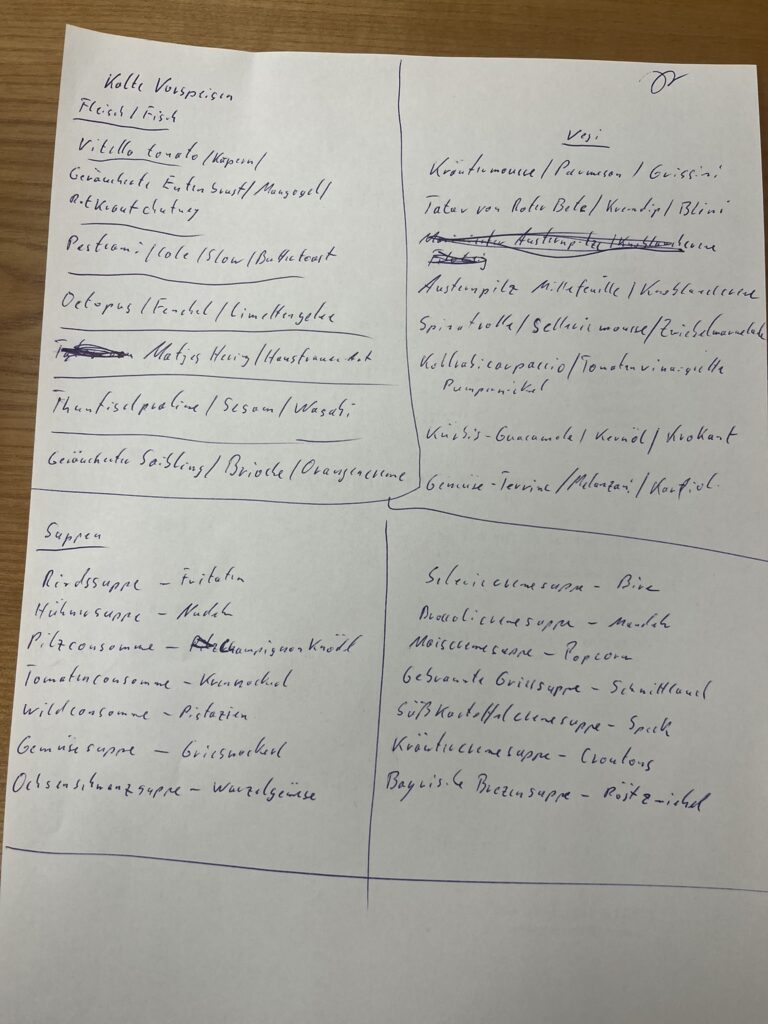 Kalte Vorspeisen
Fleisch / Fisch
Vitello tonato / Kapern /
Geräucherte Entenbrust / Mangogel /
Rotkrautchutney
Pastrami / Cole / Slow / Buttertoast
Octopus / Fenchel / Limettengelee
Matjes Hering / Hausfrauen Art
Thunfischpraline / Sesam / Wasabi
Geräucherter Saibling / Brioche / Orangencreme
Vegi
Kräutermousse / Parmesan / Grissini
Tatar von Roter Bete / Krendip / Blini
Austernpilz Millefeuille / Knoblauchcreme
Spinatrolle / Selleriemousse / Zwiebelmarmelade
Kohlrabicarpaccio / Tomatenvinaigrette
Pumpernickel
Kürbis-Guacamole / Kernöl / Krokant
Gemüse-Terrine / Melanzani / Karfiol
Suppen
Rindssuppe – Fritaten
Hühnersuppe – Nudeln
Pilzconsomme – Champignon Knödl
Tomatenconsomme – Krennockerl
Wildconsomme – Pistazien
Gemüsesuppe – Griesnockerl
Ochsenschwanzsuppe – Wurzelgemüse
Selleriecremesuppe – Birne
Broccolicremesuppe – Mandeln
Maiscremesuppe – Popcorn
Gebrannte Griessuppe – Schnittlauch
Süßkartoffelcremesuppe – Speck
Kräutercremesuppe – Croutons
Bayrische Brezensuppe – Röstzwiebel